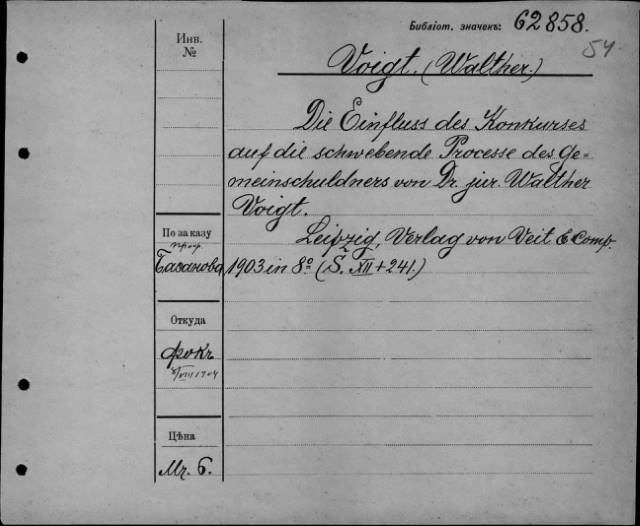 Библіот. значекъ: 62858.
54
Инв.
№
Voigt. (Walther.)
Die Einfluss des Konkurses
auf die schwebende Processe des Ge-
meinschuldners von Dr. jur. Walther
Voigt.
Leipzig, Verlag von Veit & Comp.
1903 in 8º (S. XII + 241.)
По заказу
проф
Базанова
Откуда
Фокъ
/VIII 1904
Цѣна
Mr. 6.